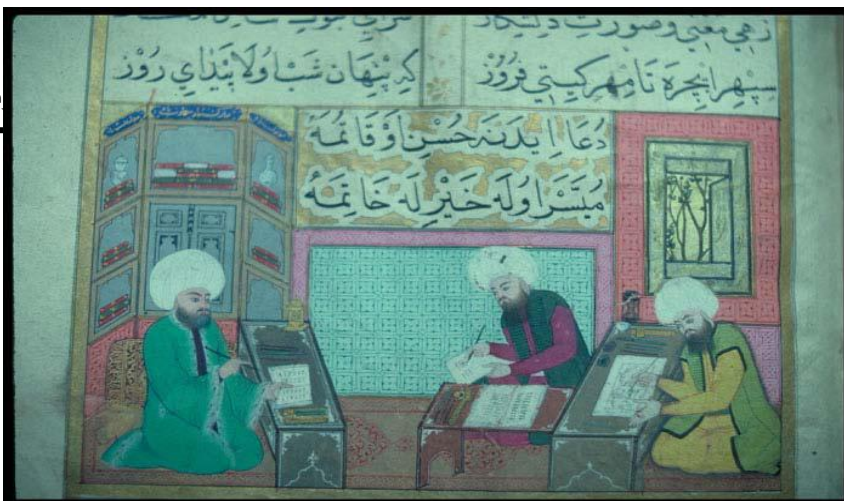 زهی معنی و صورت دلشکار
سپهر ایچره تا مهر کیتی فروز که پنهان شب اولا پیدای روز
دُعَا اِیدَنَه حُسْنِ اَوْقَاتُمَه
مُیَسَّر اوُلَه خَیْرِلَه خَاتِمَه